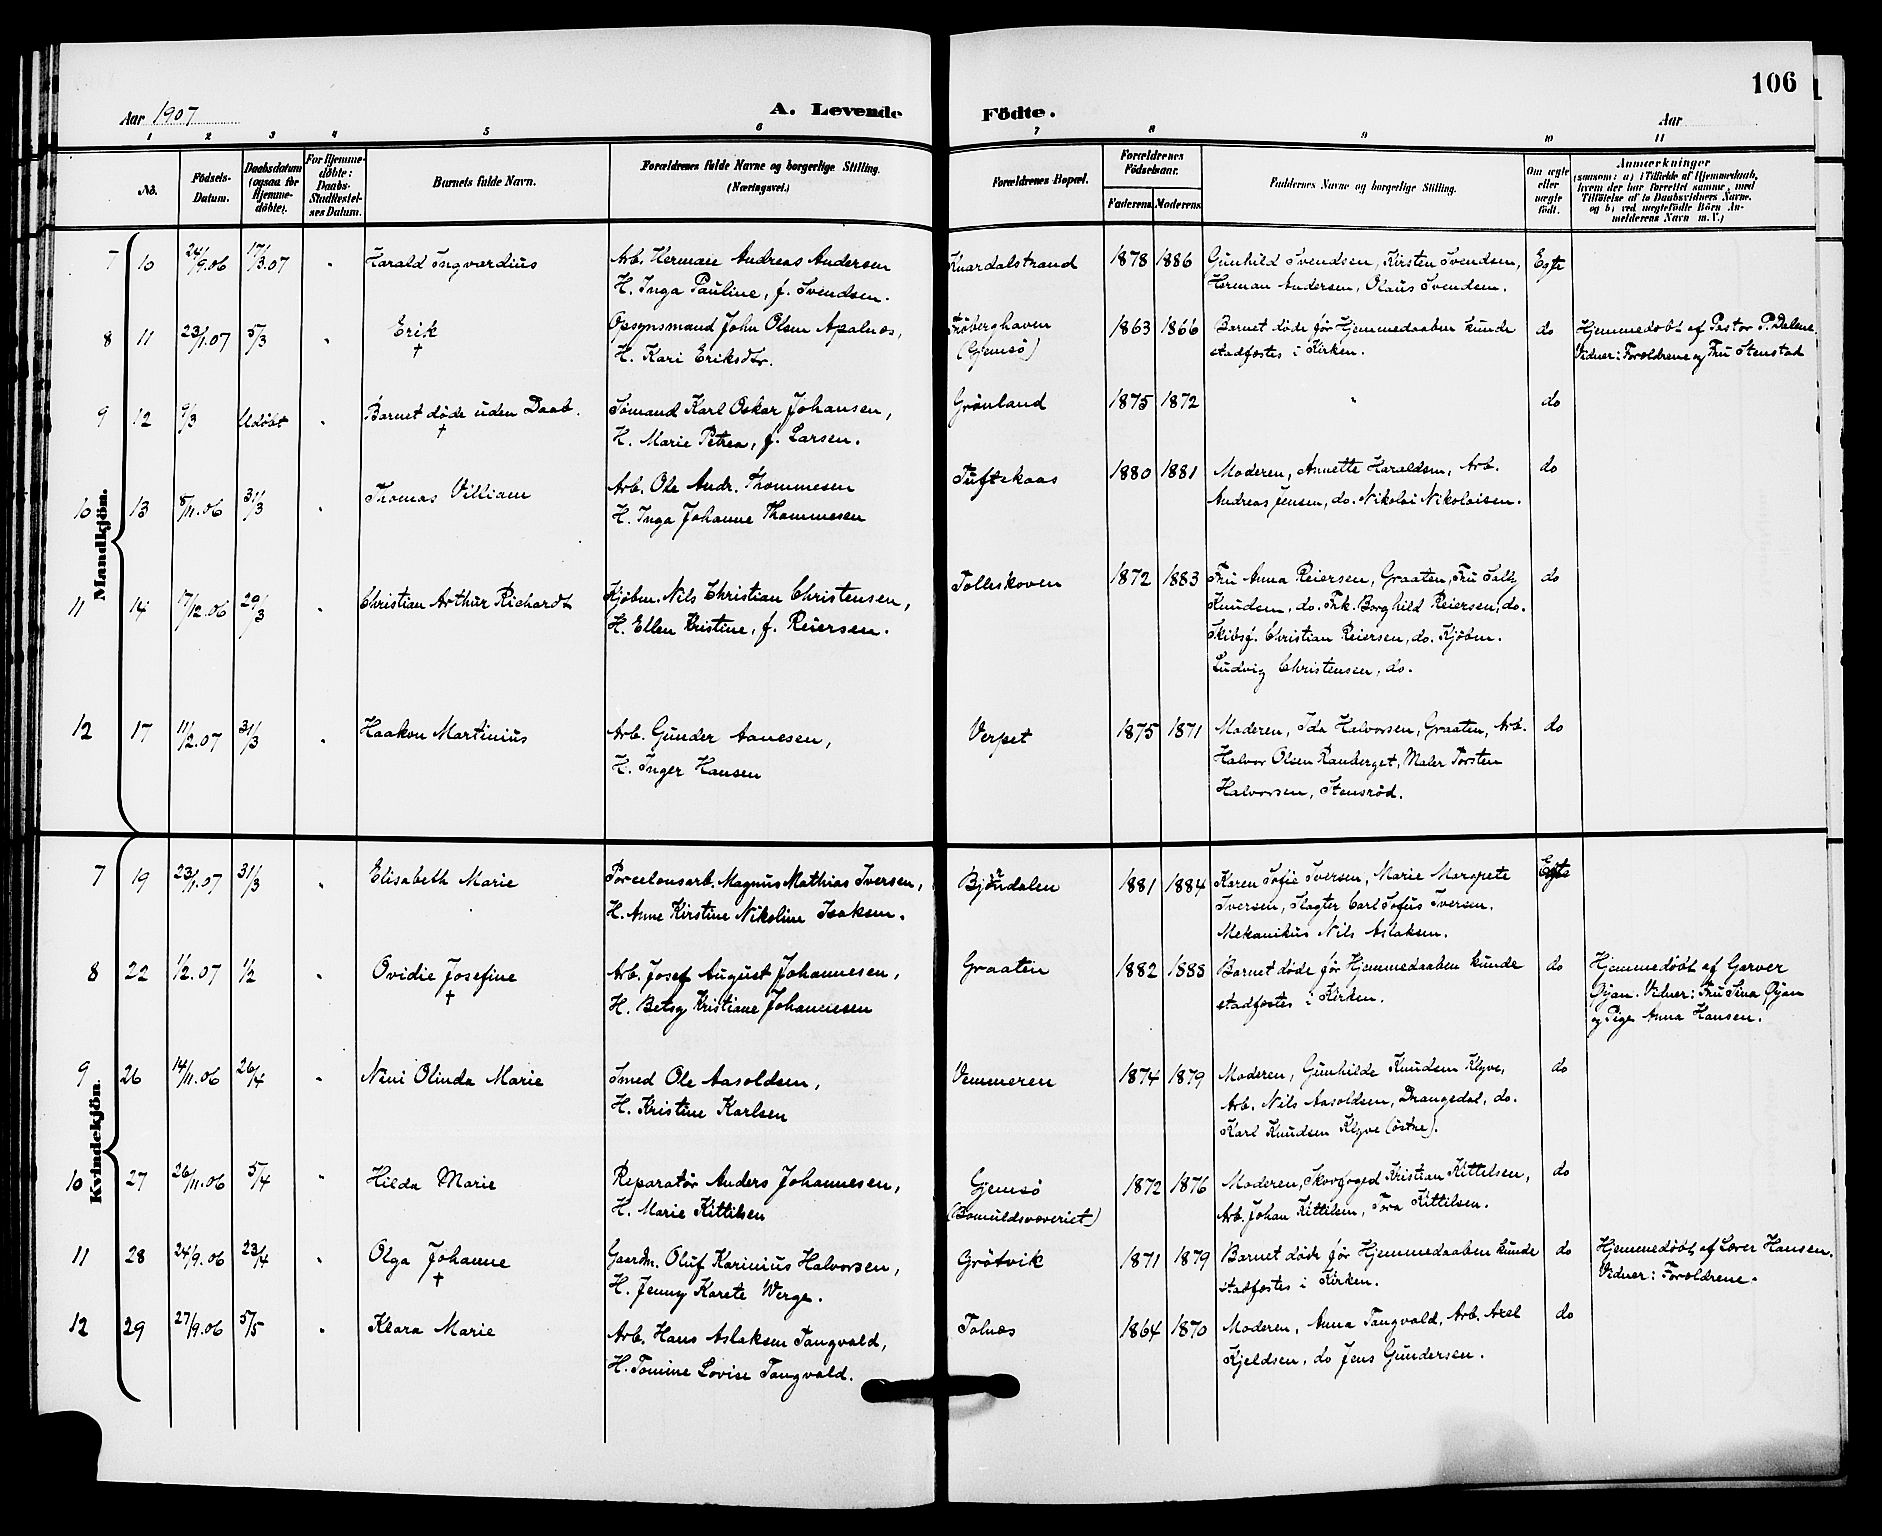 106
Aar 1907
A. Levende Födte.
Aar
1 2 3 4 5 6 7 8 9 10 11
No.
Födsels-
Datum.
Daabsdatum
(ogsaa for
Hjemme-
döbte).
For Hjemme-
döbte:
Daabs-
Stadfæstel-
ses Datum.
Barnets fulde Navn.
Forældrenes fulde Navne og borgerlige Stilling.
(Næringsvei.)
Forældrenes Bopæl.
Forældrenes
Födselsaar.
Faderens. Moderens.
Faddernes Navne og borgerlige Stilling.
Om ægte
eller
uægte
födt.
Anmærkninger
(saasom: a) i Tilfælde af Hjemmedaab,
hvem der har forrettet samme, med
Tilföielse af to Daabsvidners Navne.
og b) ved uægtefödte Börn An-
melderens Navn m. V.)
Mandkjön.
7 10 24/9.06 17/3.07 " Harald Ingvardius
Arb. Herman Andreas Andersen
H. Inga Pauline, f. Svendsen.
Knardalstrand 1878 1886
Gunhild Svendsen, Kirsten Svendsen,
Herman Andersen, Olaus Svendsen.
Egte
8 11 23/1.07 5/3 " Erik
†
Opsynsmand John Olsen Apalnæs,
H. Kari Eriksdtr.
(Gjemsö)
1863 1866
Barnet døde før Hjemmedaaben kunde
stadfæstes i Kirken.
do
Hjemmedøbt af Pastor P. Dalene.
Vidner: Forældrene og Fru Stenstad
9 12 9/3 Udøbt " Barnet døde uden Daab.
†
Sømand Karl Oskar Johansen,
H. Marie Petrea, f. Larsen.
Grønland 1875 1872 " do
10 13 8/11.06 31/3 " Thomas Villiam
Arb. Ole Andr. Thommesen
H. Inga Johanne Thommesen
Tuftekaas 1880 1881
Moderen, Annette Haraldsen, Arb.
Andreas Jensen, do. Nikolai Nikolaisen.
do
11 14 17/12.06 29/3 " Christian Arthur Richardt
Kjøbm. Nils Christian Christensen,
H. Ellen Kristine, f. Reiersen.
Tolleskoven 1872 1883
Fru Anna Reiersen, Graaten, Fru Sally
Knudsen, do. Frk. Borghild Reiersen, do.
Skibsf. Christian Reiersen, do. Kjøbm.
Ludvig Christensen, do.
do
12 17 11/2.07 31/3 " Haakon Martinius
Arb. Gunder Aanesen,
H. Inger Hansen
Verpet 1875 1871
Moderen, Ida Halvorsen, Graaten, Arb.
Halvor Olsen Ranberget, Maler Torsten
Halvorsen, Stensrød.
do
Kvindekjön.
7 19 23/1.07 31/3 " Elisabeth Marie
Porcelænsarb. Magnus Mathias Iversen,
H. Anne Kirstine Nikoline Isaksen.
Bjørndalen 1881 1884
Karen Sofie Iversen, Marie Margrete
Iversen, Slagter Carl Sofus Iversen.
Mekanikus Nils Aslaksen.
Egte
8 22 1/2.07 1/2 " Ovidie Josefine
†
Arb. Josef August Johannesen,
H. Betsy Kristiane Johannesen
Graaten 1882 1883
Barnet døde før Hjemmedaaben kunde
stadfæstes i Kirken.
do
Hjemmedøbt af Garver
Gjan. Vidner: Fru Sina Gjan
og Pige Anna Hansen.
9 26 14/11.06 26/4 " Nini Olinda Marie
Smed Ole Aasoldsen,
H. Kristine Karlsen
Vemmeren 1874 1879
Moderen, Gunhilde Knudsen Klyve,
Arb. Nils Aasoldsen, Drangedal, do.
Karl Knudsen Klyve (østre).
do
10 27 26/11.06 5/4 " Hilda Marie
Reparatør Anders Johannesen,
H. Marie Kittilsen
Gjemsø
(Bomuldsvæveriet)
1872 1876
Moderen, Skovfoged Kristian Kittelsen,
Arb. Johan Kittilsen, Tora Kittilsen.
do
11 28 24/9.06 23/4 " Olga Johanne
†
Gaardm. Oluf Karinius Halvorsen,
H. Jenny Karete Werge.
Grøtvik 1871 1879
Barnet døde før Hjemmedaaben kunde
stadfæstes i Kirken.
do
Hjemmedøbt af Lærer Hansen.
Vidner: Forældrene.
12 29 27/9.06 5/5 " Klara Marie
Arb. Hans Aslaksen Tangvald,
H. Tomine Lovise Tangvald.
Tolnæs 1864 1870
Moderen, Anna Tangvald, Arb. Axel
Kjeldsen, do Jens Gundersen.
do